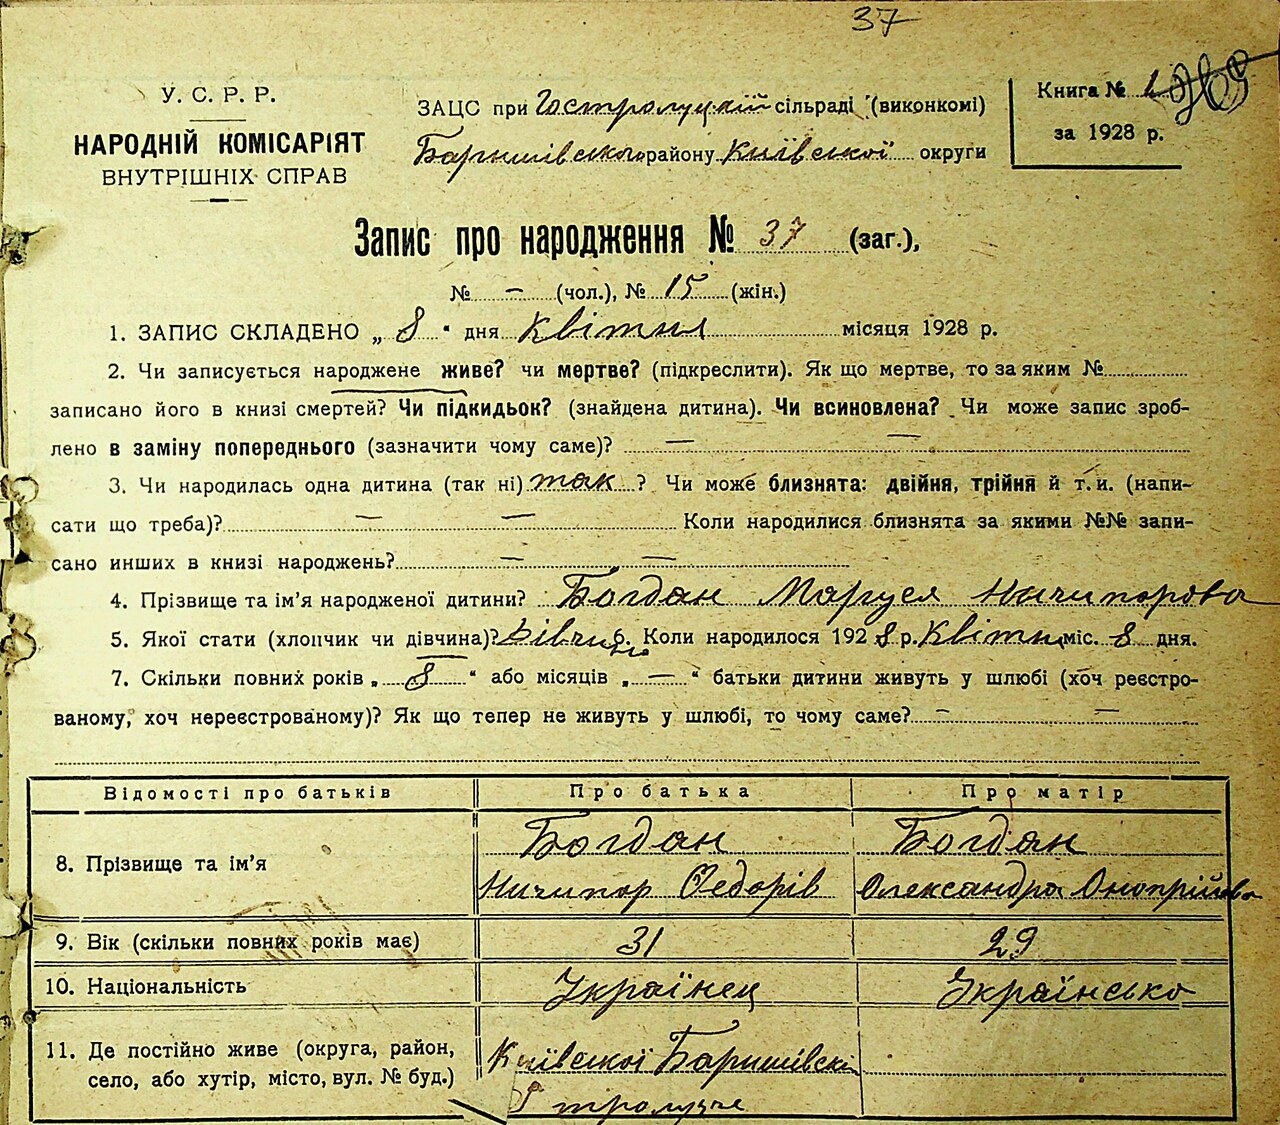 37
У. С. Р. Р.
НАРОДНІЙ КОМІСАРІЯТ
ВНУТРІШНІХ СПРАВ
ЗАЦС при Гостролуцкій сільраді (виконкомі)
Баришівського району Київської округи
Книга № 1
за 1928 р.
Запис про народження № 37 (заг.),
№ - (чол.), № 15 (жін.)
1. ЗАПИС СКЛАДЕНО „ 8 " дня Квітня місяця 1928 р.
2. Чи записується народжене живе? чи мертве? (підкреслити). Як що мертве, то за яким №
записано його в книзі смертей? Чи підкидьок? (знайдена дитина). Чи всиновлена? Чи може запис зроб-
лено в заміну попереднього (зазначити чому саме)? — —
3. Чи народилась одна дитина (так ні) так ? Чи може близнята: двійня, трійня й т. и. (напи-
сати що треба)? — — Коли народилися близнята за якими №№ запи-
сано инших в книзі народжень? — —
4. Прізвище та ім'я народженої дитини? Богдан Маруся Ничипорова
5. Якої стати (хлопчик чи дівчина)? Дівчина 6. Коли народилося 1928 р. Квітня міс. 8 дня.
7. Скільки повних років „ 8 " або місяців „ — " батьки дитини живуть у шлюбі (хоч реєстро-
ваному, хоч нереєстрованому)? Як що тепер не живуть у шлюбі, то чому саме? — —
Відомості про батьків Про батька Про матір
8. Прізвище та ім'я Богдан Богдан
Ничипор Федорів Олександра Онопрійова
9. Вік (скільки повних років має) 31 29
10. Національність Українец Українсько
11. Де постійно живе (округа, район, Київської Баришівськ
село, або хутір, місто, вул. № буд.)